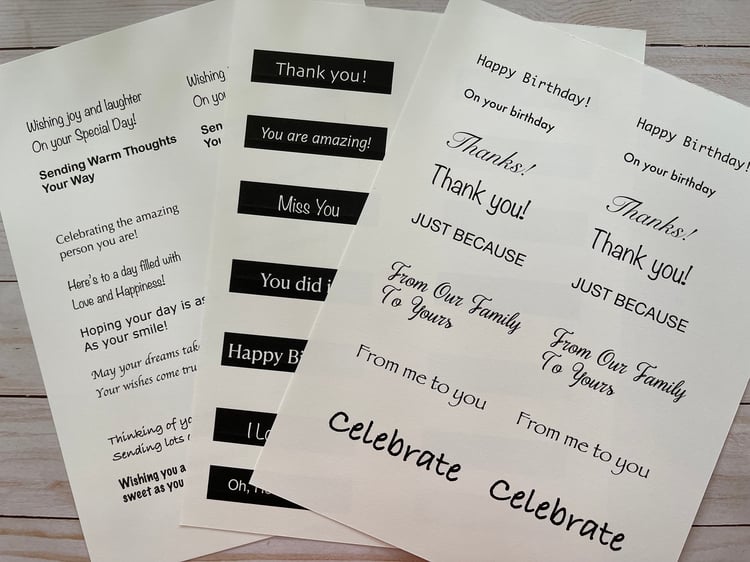 Wishing joy and laughter
On your Special Day!
Sending Warm Thoughts
Your Way
Celebrating the amazing
person you are!
Here's to a day filled with
Love and Happiness!
Hoping your day is as
As your smile!
May your dreams take
Your wishes come
Thinking of
Sending lots
Wishing you a
sweet as you
Wishing
On
Thank you!
You are amazing!
Miss You
You did
Happy
I
Oh,
Happy Birthday!
On your birthday
Thanks!
Thank you!
JUST BECAUSE
From Our Family
To Yours
From me to you
Celebrate
Happy Birthday!
On your birthday
Thanks!
Thank you!
JUST BECAUSE
From Our Family
To Yours
From me to you
Celebrate